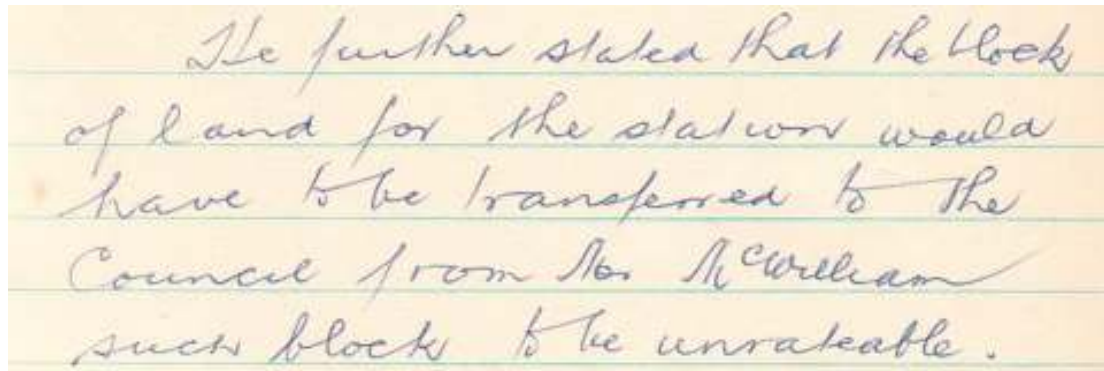 He further stated that the block
of land for the station would
have to be transferred to the
Council from Mr McWilliam
such block to be unrateable.